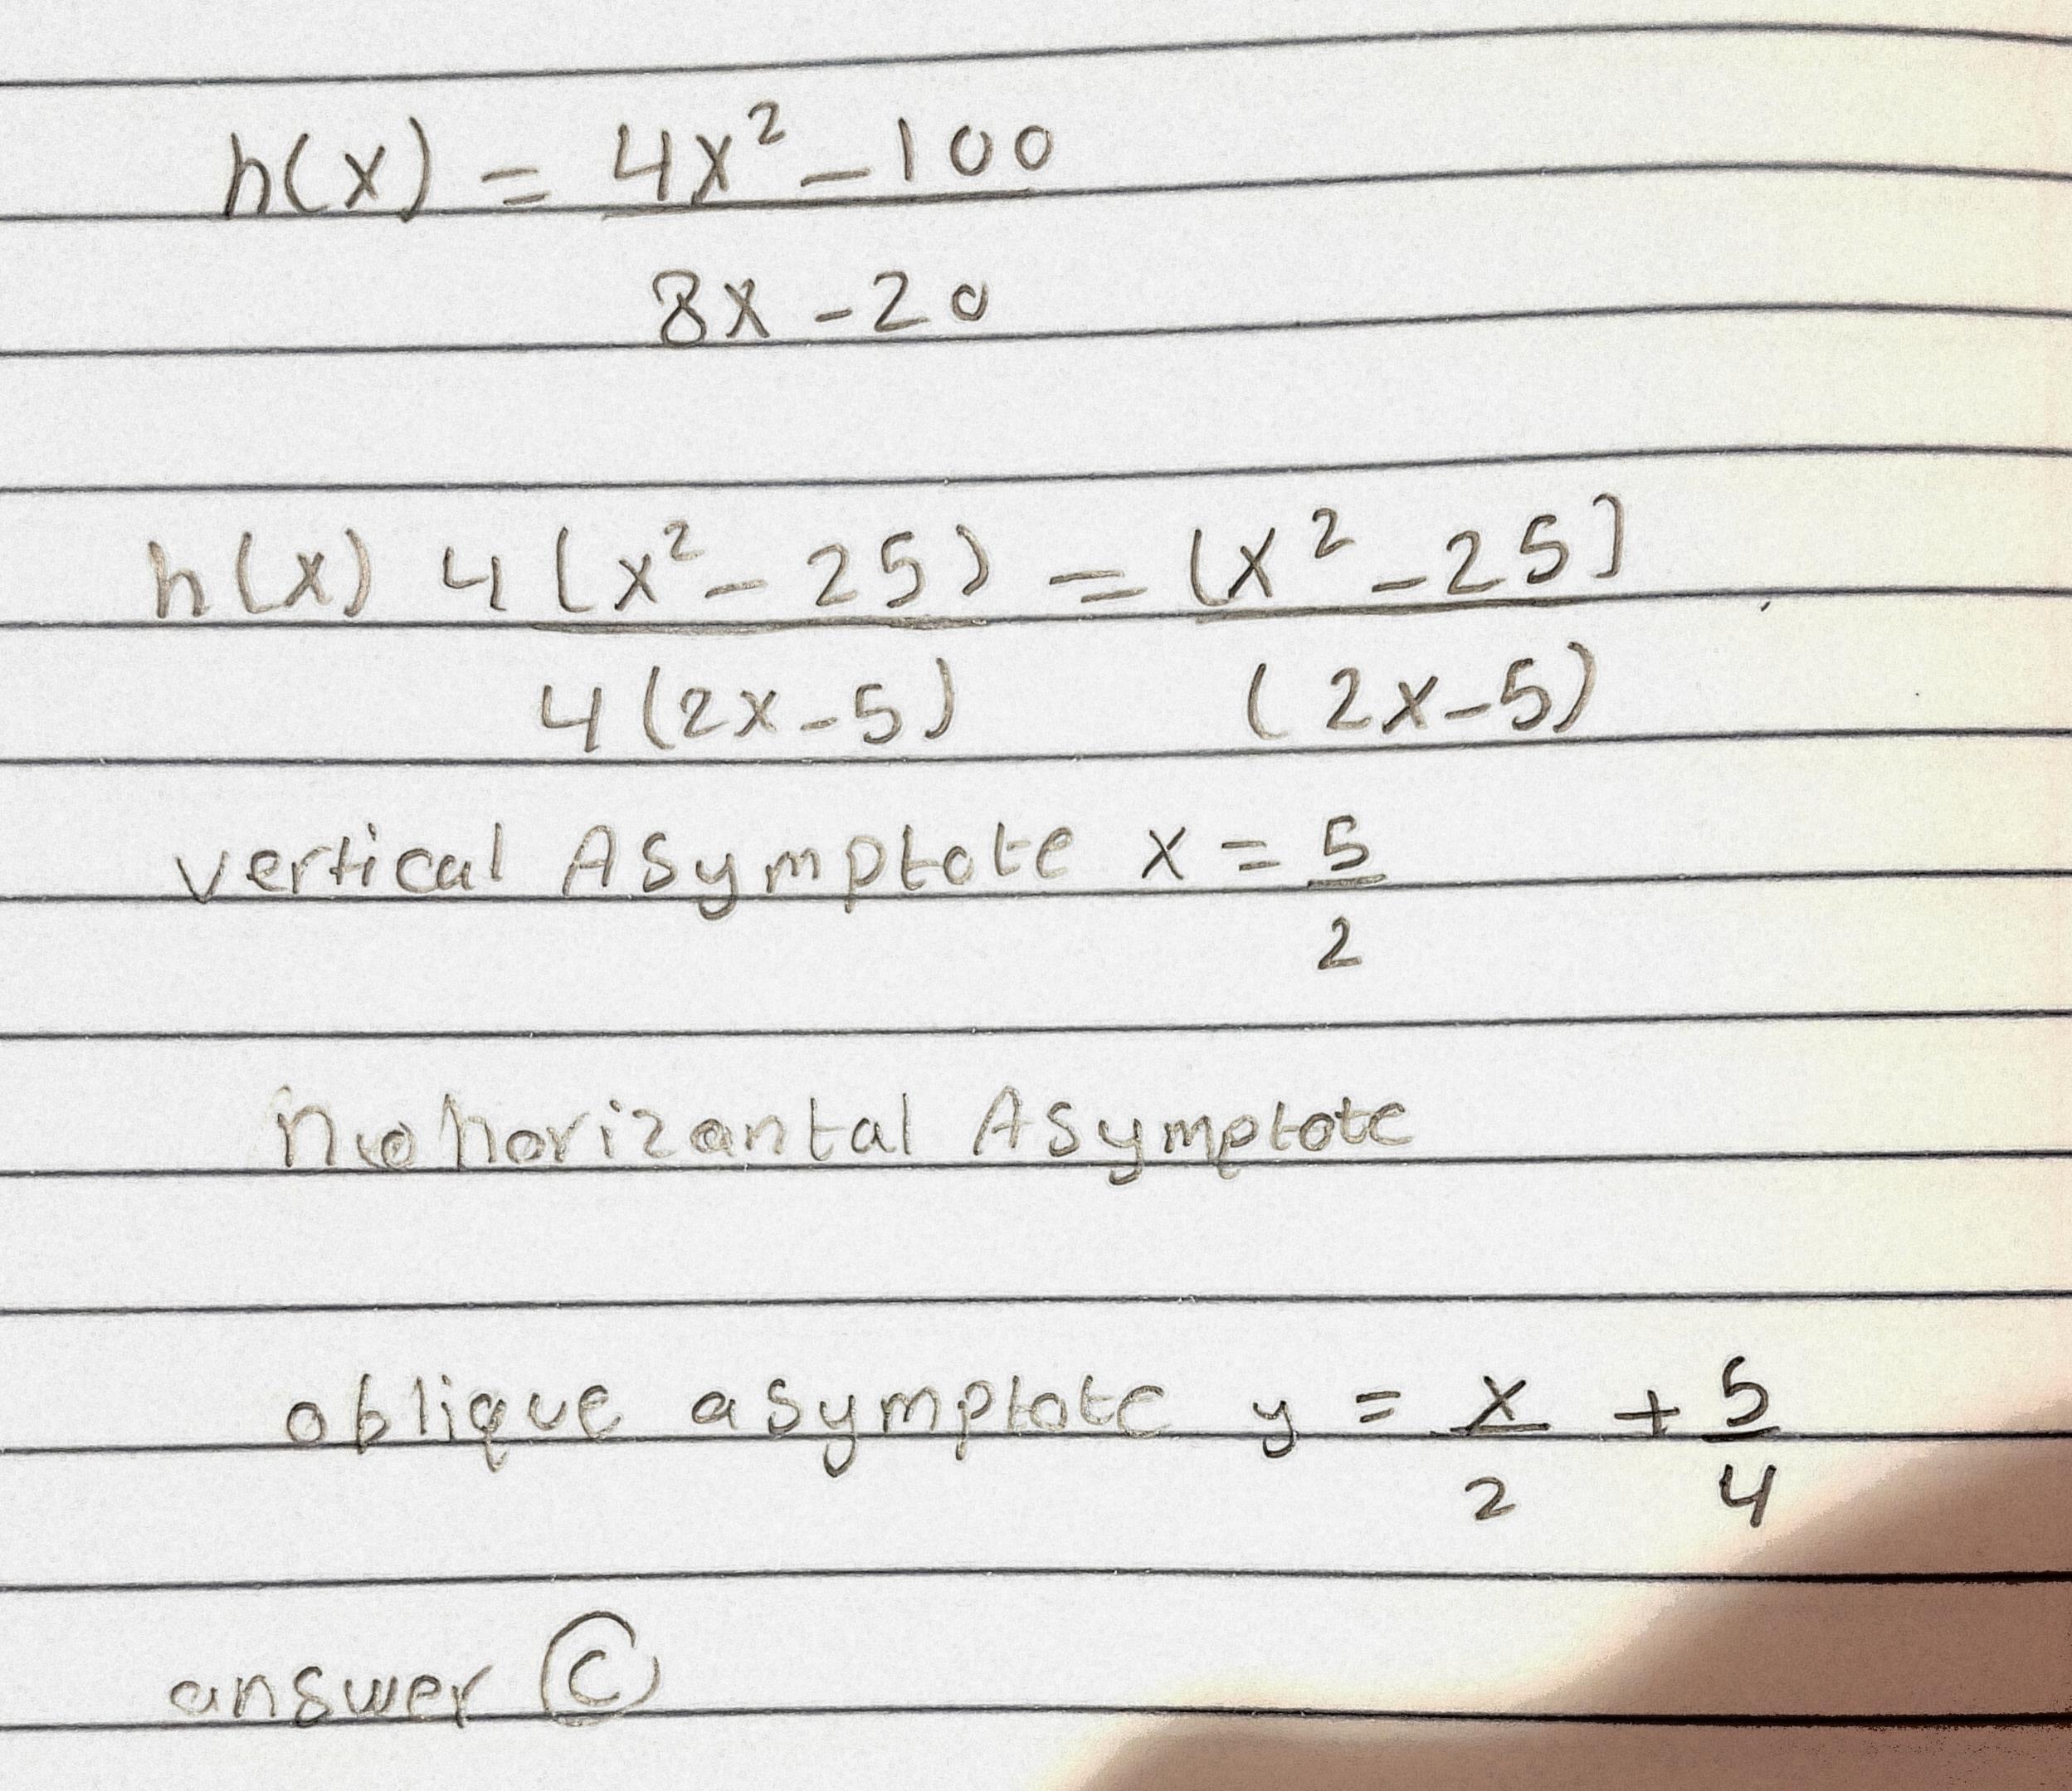 h(x) = 4x² - 100
8x - 20
h(x) 4(x² - 25) = (x² - 25)
4(2x - 5) (2x - 5)
vertical Asymptote x = 5
2
no horizantal Asymptote
oblique asymptote y = x + 5
2 4
answer Ⓒ